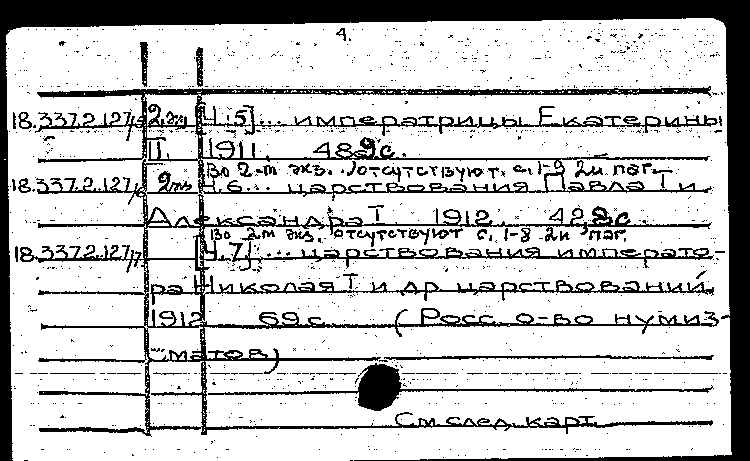 4.
18.337.2.127/5 2 экз [Ч.5]... императрицы Екатерины
II. 1911. 482с.
Во 2-м экз. отсутствуют с. 1-8 2й паг.
18.337.2.127/6 2 экз Ч.6... царствования Павла I и
Александра I 1912. 422с.
Во 2м экз. отсутствуют с. 1-8 2й паг.
18.337.2.127/7 [Ч.7]... царствования императо-
ра Николая I и др царствований.
1912 69с (Росс. о-во нумиз-
матов)
См след. карт.